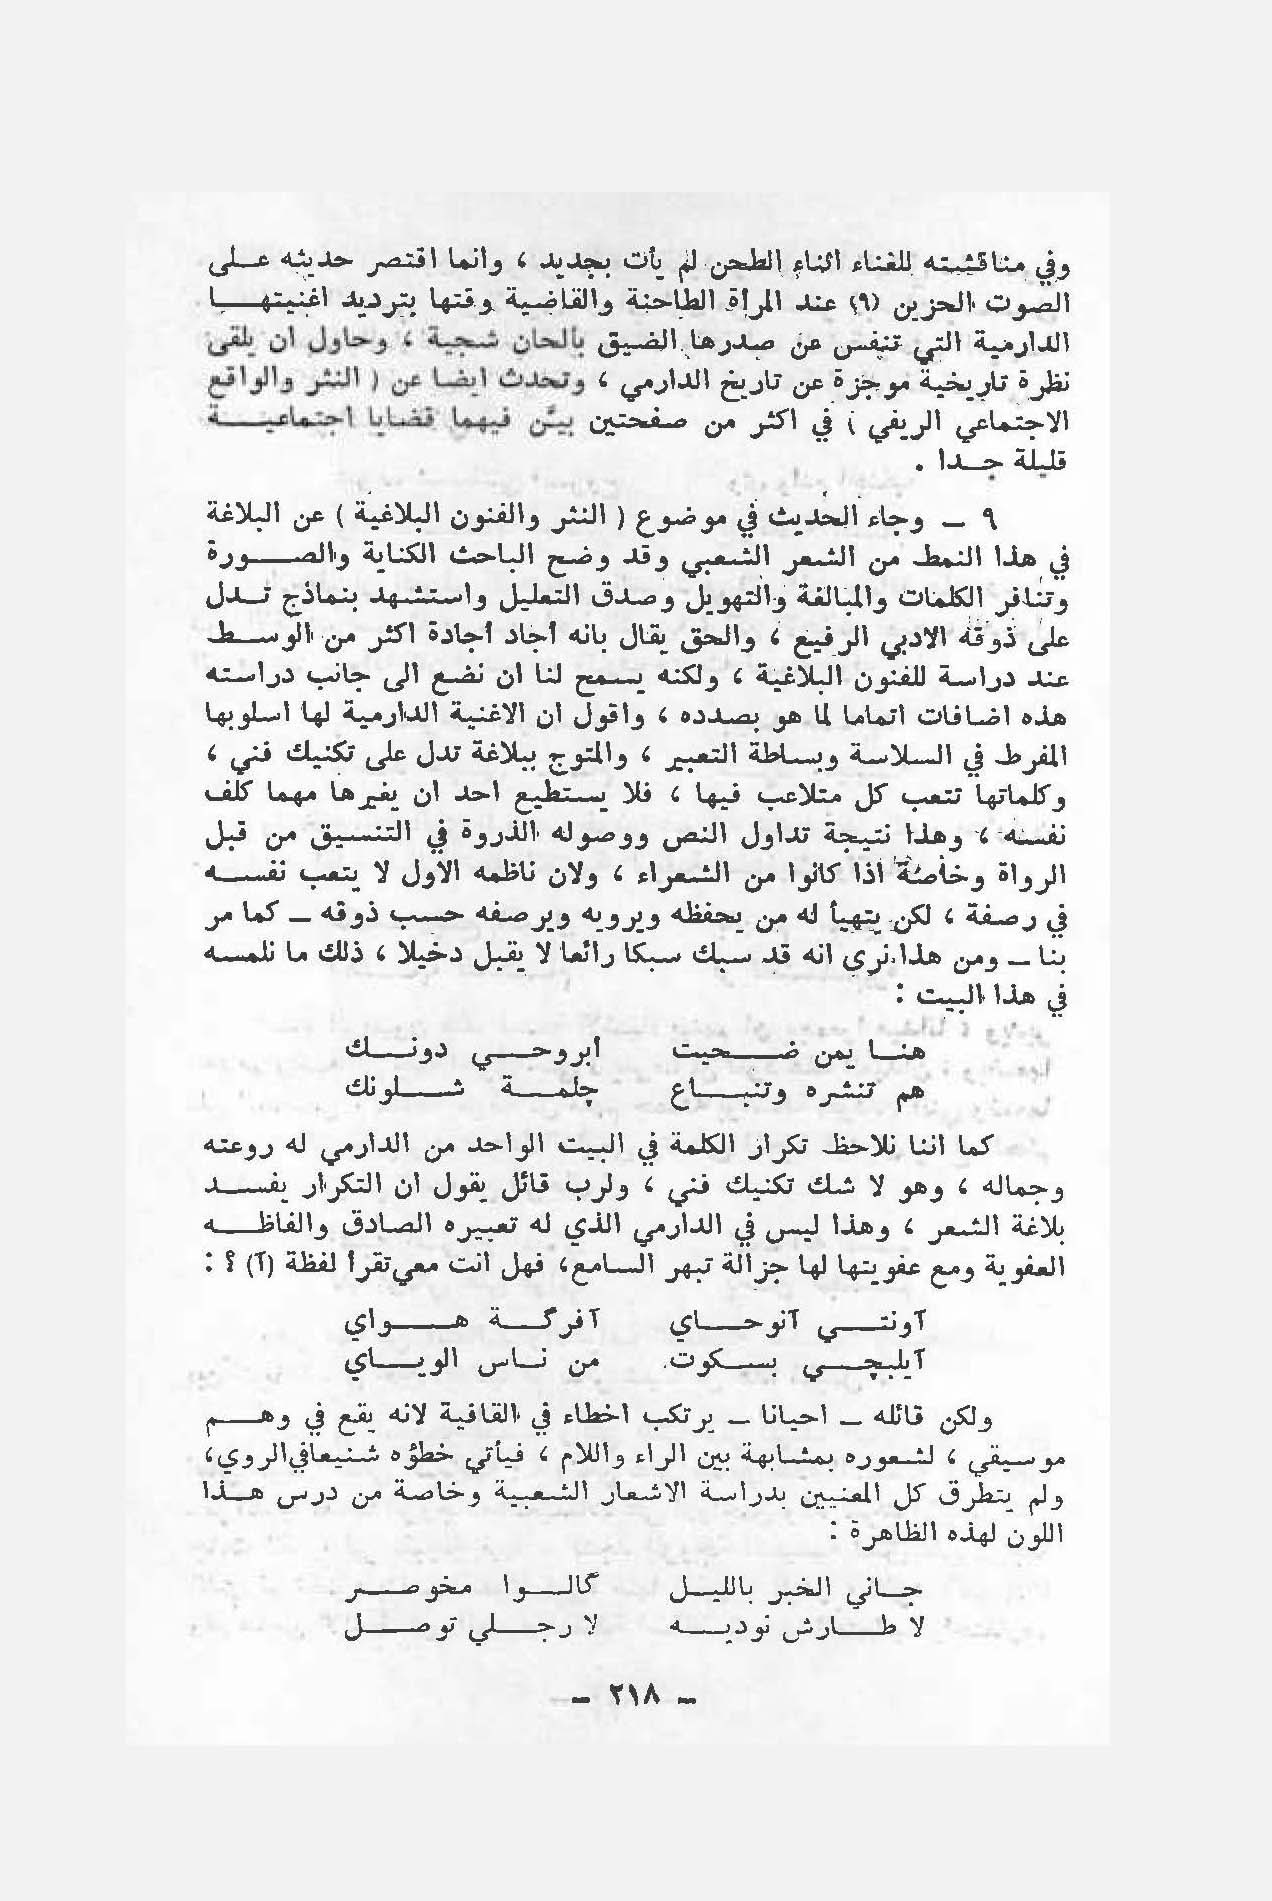 وفي مناقشته للغناء اثناء الطحن لم يأت بجديد ، وانما اقتصر حديثه على
الصوت الحزين (٩) عند المرأة الطاحنة والقاضية وقتها بترديد اغنيتها
الدارمية التي تنفس عن صدرها الضيق بألحان شجية ، وحاول ان يلقى
نظرة تاريخية موجزة عن تاريخ الدارمي ، وتحدث ايضا عن ( النثر والواقع
الاجتماعي الريفي ) في اكثر من صفحتين بيّن فيهما قضايا اجتماعية
قليلة جدا .
٩ ـ وجاء الحديث في موضوع ( النثر والفنون البلاغية ) عن البلاغة
في هذا النمط من الشعر الشعبي وقد وضح الباحث الكناية والصورة
وتنافر الكلمات والمبالغة والتهويل وصدق التعليل واستشهد بنماذج تدل
على ذوقه الادبي الرفيع ، والحق يقال بانه أجاد أجادة اكثر من الوسط
عند دراسة للفنون البلاغية ، ولكنه يسمح لنا ان نضع الى جانب دراسته
هذه اضافات اتماما لما هو بصدده ، واقول ان الاغنية الدارمية لها اسلوبها
المفرط في السلاسة وبساطة التعبير ، والمتوج ببلاغة تدل على تكنيك فني ،
وكلماتها تتعب كل متلاعب فيها ، فلا يستطيع احد ان يغيرها مهما كلف
نفسه ، وهذا نتيجة تداول النص ووصوله الذروة في التنسيق من قبل
الرواة وخاصة اذا كانوا من الشعراء ، ولان ناظمه الاول لا يتعب نفسه
في رصفة ، لكن يتهيأ له من يحفظه ويرويه ويرصفه حسب ذوقه ـ كما مر
بنا ـ ومن هذا نرى انه قد سبك سبكا رائعا لا يقبل دخيلا ، ذلك ما نلمسه
في هذا البيت :
هنا يمن ضحيت أبروحي دونك
هم تنشره وتنباع چلمة شلونك
كما اننا نلاحظ تكرار الكلمة في البيت الواحد من الدارمي له روعته
وجماله ، وهو لا شك تكنيك فني ، ولرب قائل يقول ان التكرار يفسد
بلاغة الشعر ، وهذا ليس في الدارمي الذي له تعبيره الصادق والفاظه
العفوية ومع عفويتها لها جزالة تبهر السامع، فهل انت معي تقرأ لفظة (آ) ؟ :
آونتي آنوحاي آفرگة هواي
آيلبچي بسكوت من ناس الوياي
ولكن قائله ـ احيانا ـ يرتكب اخطاء في القافية لانه يقع في وهم
موسيقي ، لشعوره بمشابهة بين الراء واللام ، فيأتي خطؤه شنيعا في الروي،
ولم يتطرق كل المعنيين بدراسة الاشعار الشعبية وخاصة من درس هذا
اللون لهذه الظاهرة :
جاني الخبر بالليل گالوا مخوصر
لا طارش نوديه لا رجلي توصل
ـ ٢١٨ ـ